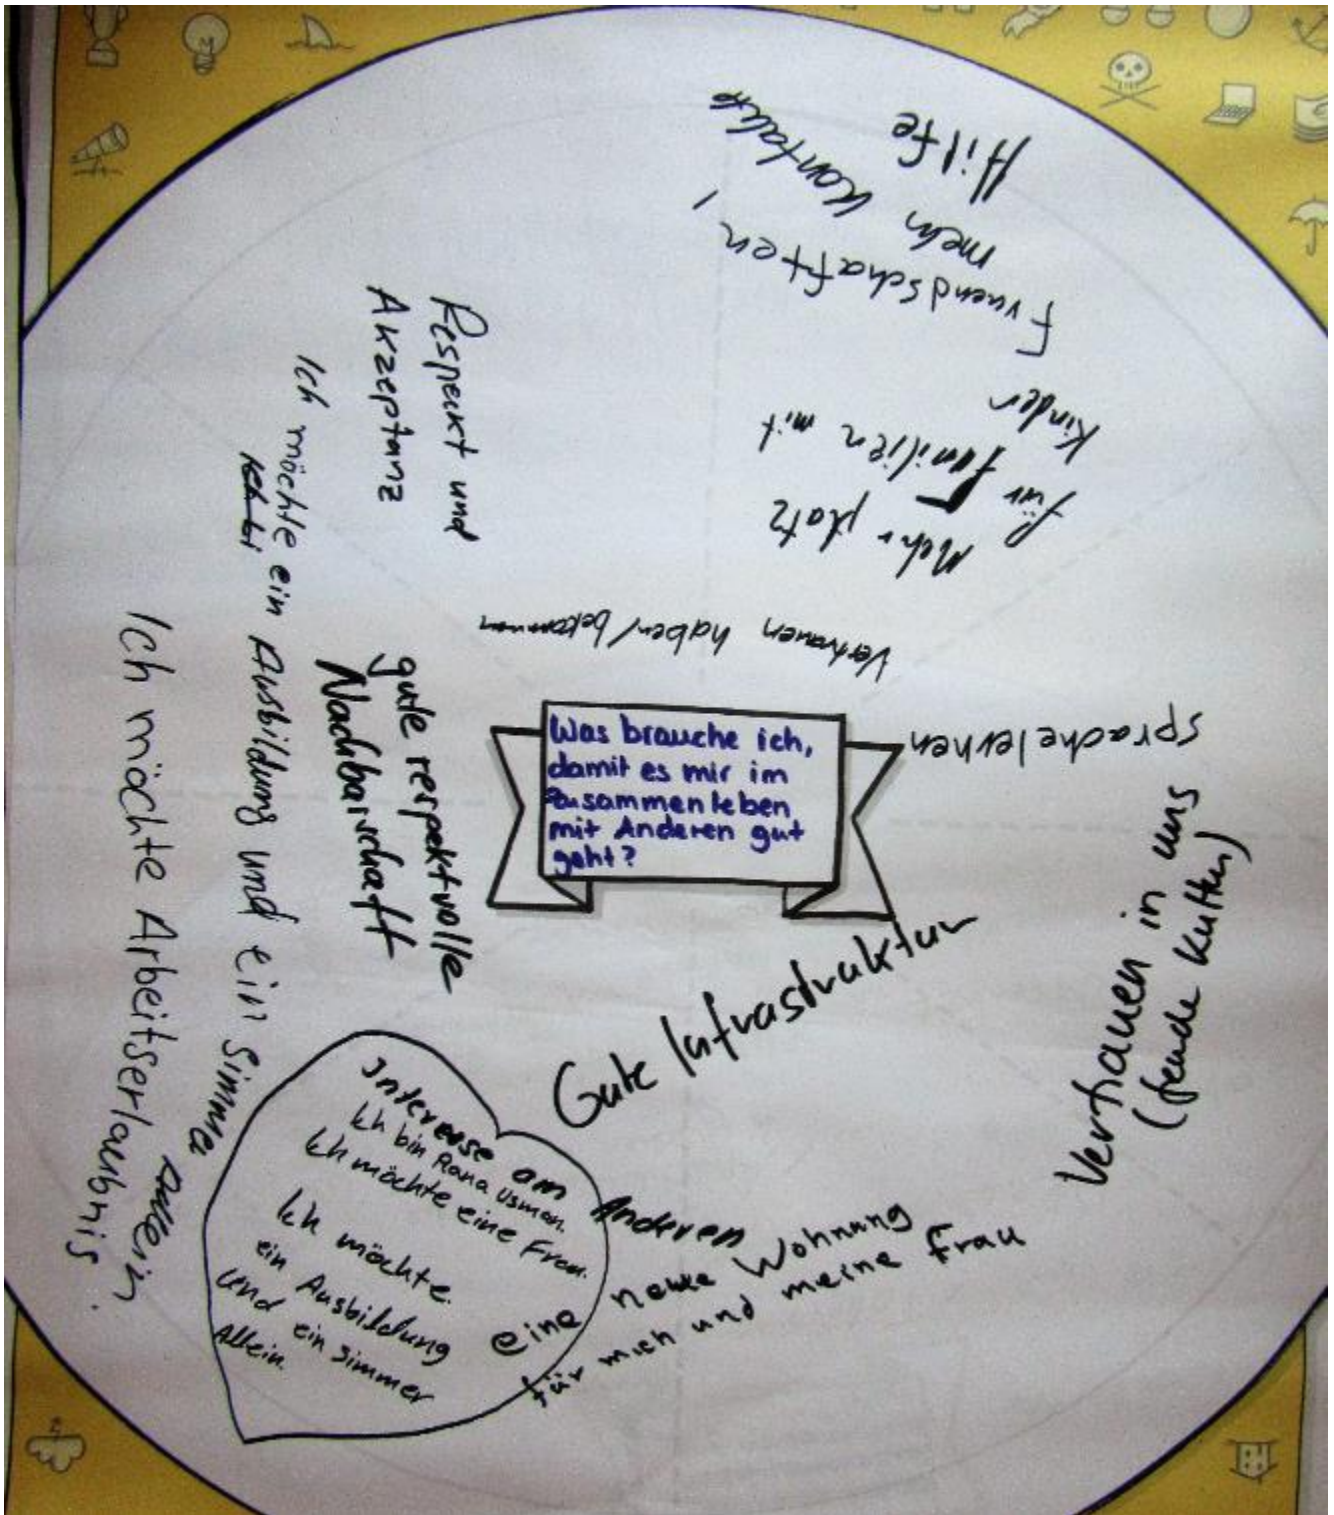 Was brauche ich,
damit es mir im
Zusammenleben
mit Anderen gut
geht?
Hilfe
mehr Kontakte
Freundschaften,
Mehr platz
für Familien mit
Kinder
Vertrauen haben/bekommen
sprache lernen
Vertrauen in uns
(fremde Kultur)
Gute Infrastruktur
eine neue Wohnung
für mich und meine Frau
Interesse am Anderen
Ich bin Rana Usman.
Ich möchte eine Frau.
Ich möchte.
ein Ausbildung
und ein simmer
Allein.
Respekt und
Akzeptanz
gute respektvolle
Nachbarschaft
Ich möchte ein Ausbildung und ein Simme
Allein
Ich möchte Arbeitserlaubnis.